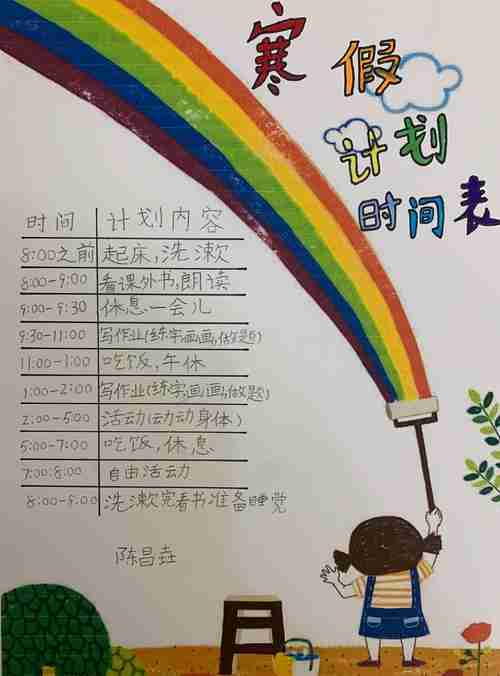 寒假
计划
时间表
时间 计划内容
8:00之前 起床,洗漱
8:00-9:00 看课外书,朗读
9:00-9:30 休息一会儿
9:30-11:00 写作业(练字画画,做题)
11:00-1:00 吃饭,午休
1:00-2:00 写作业(练字画画,做题)
2:00-5:00 活动(动动身体)
5:00-7:00 吃饭,休息
7:00-8:00 自由活动
8:00-9:00 洗漱完看书准备睡觉
陈昌垚